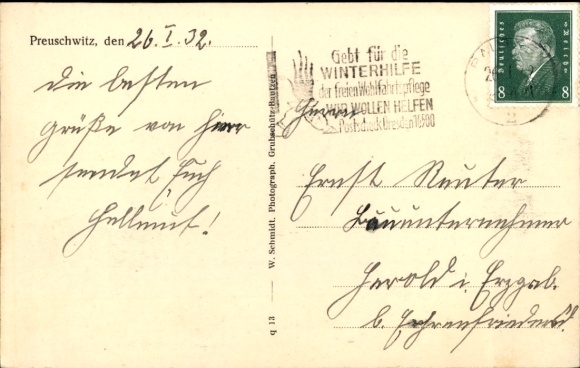 Preuschwitz, den 26. I. 32.
Die besten
grüße von hier
sendet Euch
Hellmut!
W. Schmidt, Photograph. Grubschütz-Bautzen
q 13
Gebt für die
WINTERHILFE
der freien Wohlfahrtspflege
WIR WOLLEN HELFEN
Postscheck: Dresden
Deutsches Reich
8 8
Herrn
Ernst Reuter
Bauunternehmer
Harold i. Erzgeb.
b. Ehrenfriedersd.